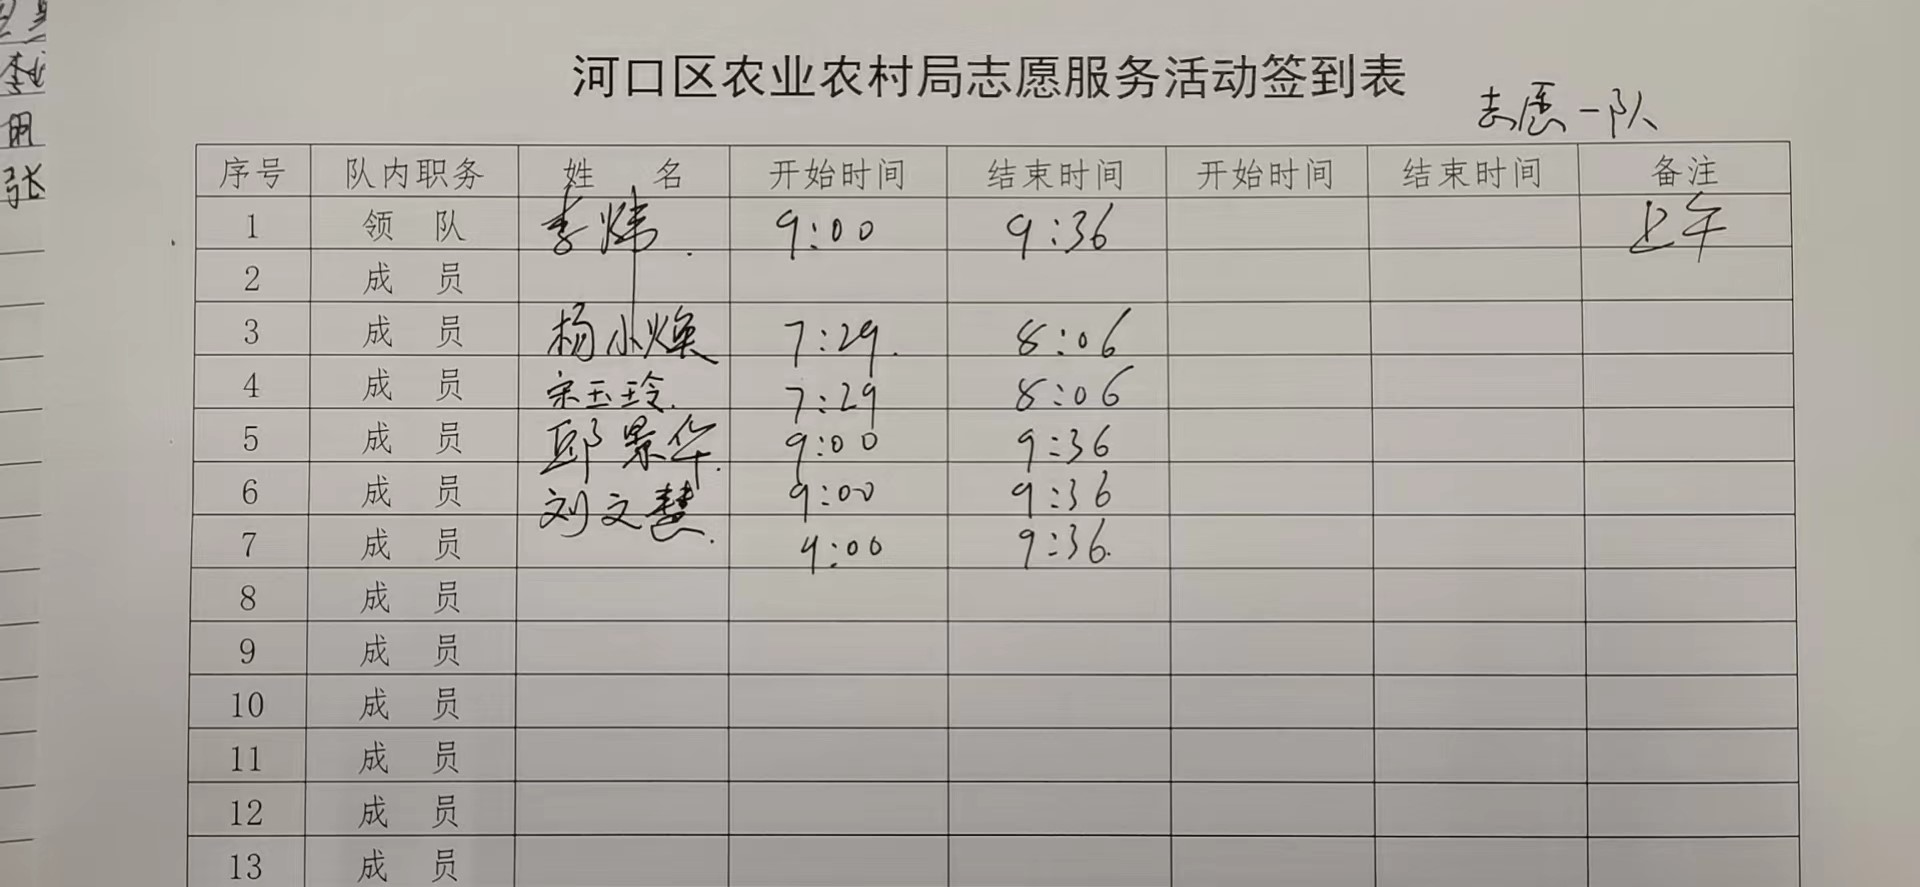 河口区农业农村局志愿服务活动签到表
志愿一队
序号 队内职务 姓 名 开始时间 结束时间 开始时间 结束时间 备注
1 领 队 李炜 9:00 9:36 上午
2 成 员
3 成 员 杨小焕 7:29 8:06
4 成 员 宋玉玲 7:29 8:06
5 成 员 邱景华 9:00 9:36
6 成 员 刘文慧 9:00 9:36
7 成 员 9:00 9:36
8 成 员
9 成 员
10 成 员
11 成 员
12 成 员
13 成 员